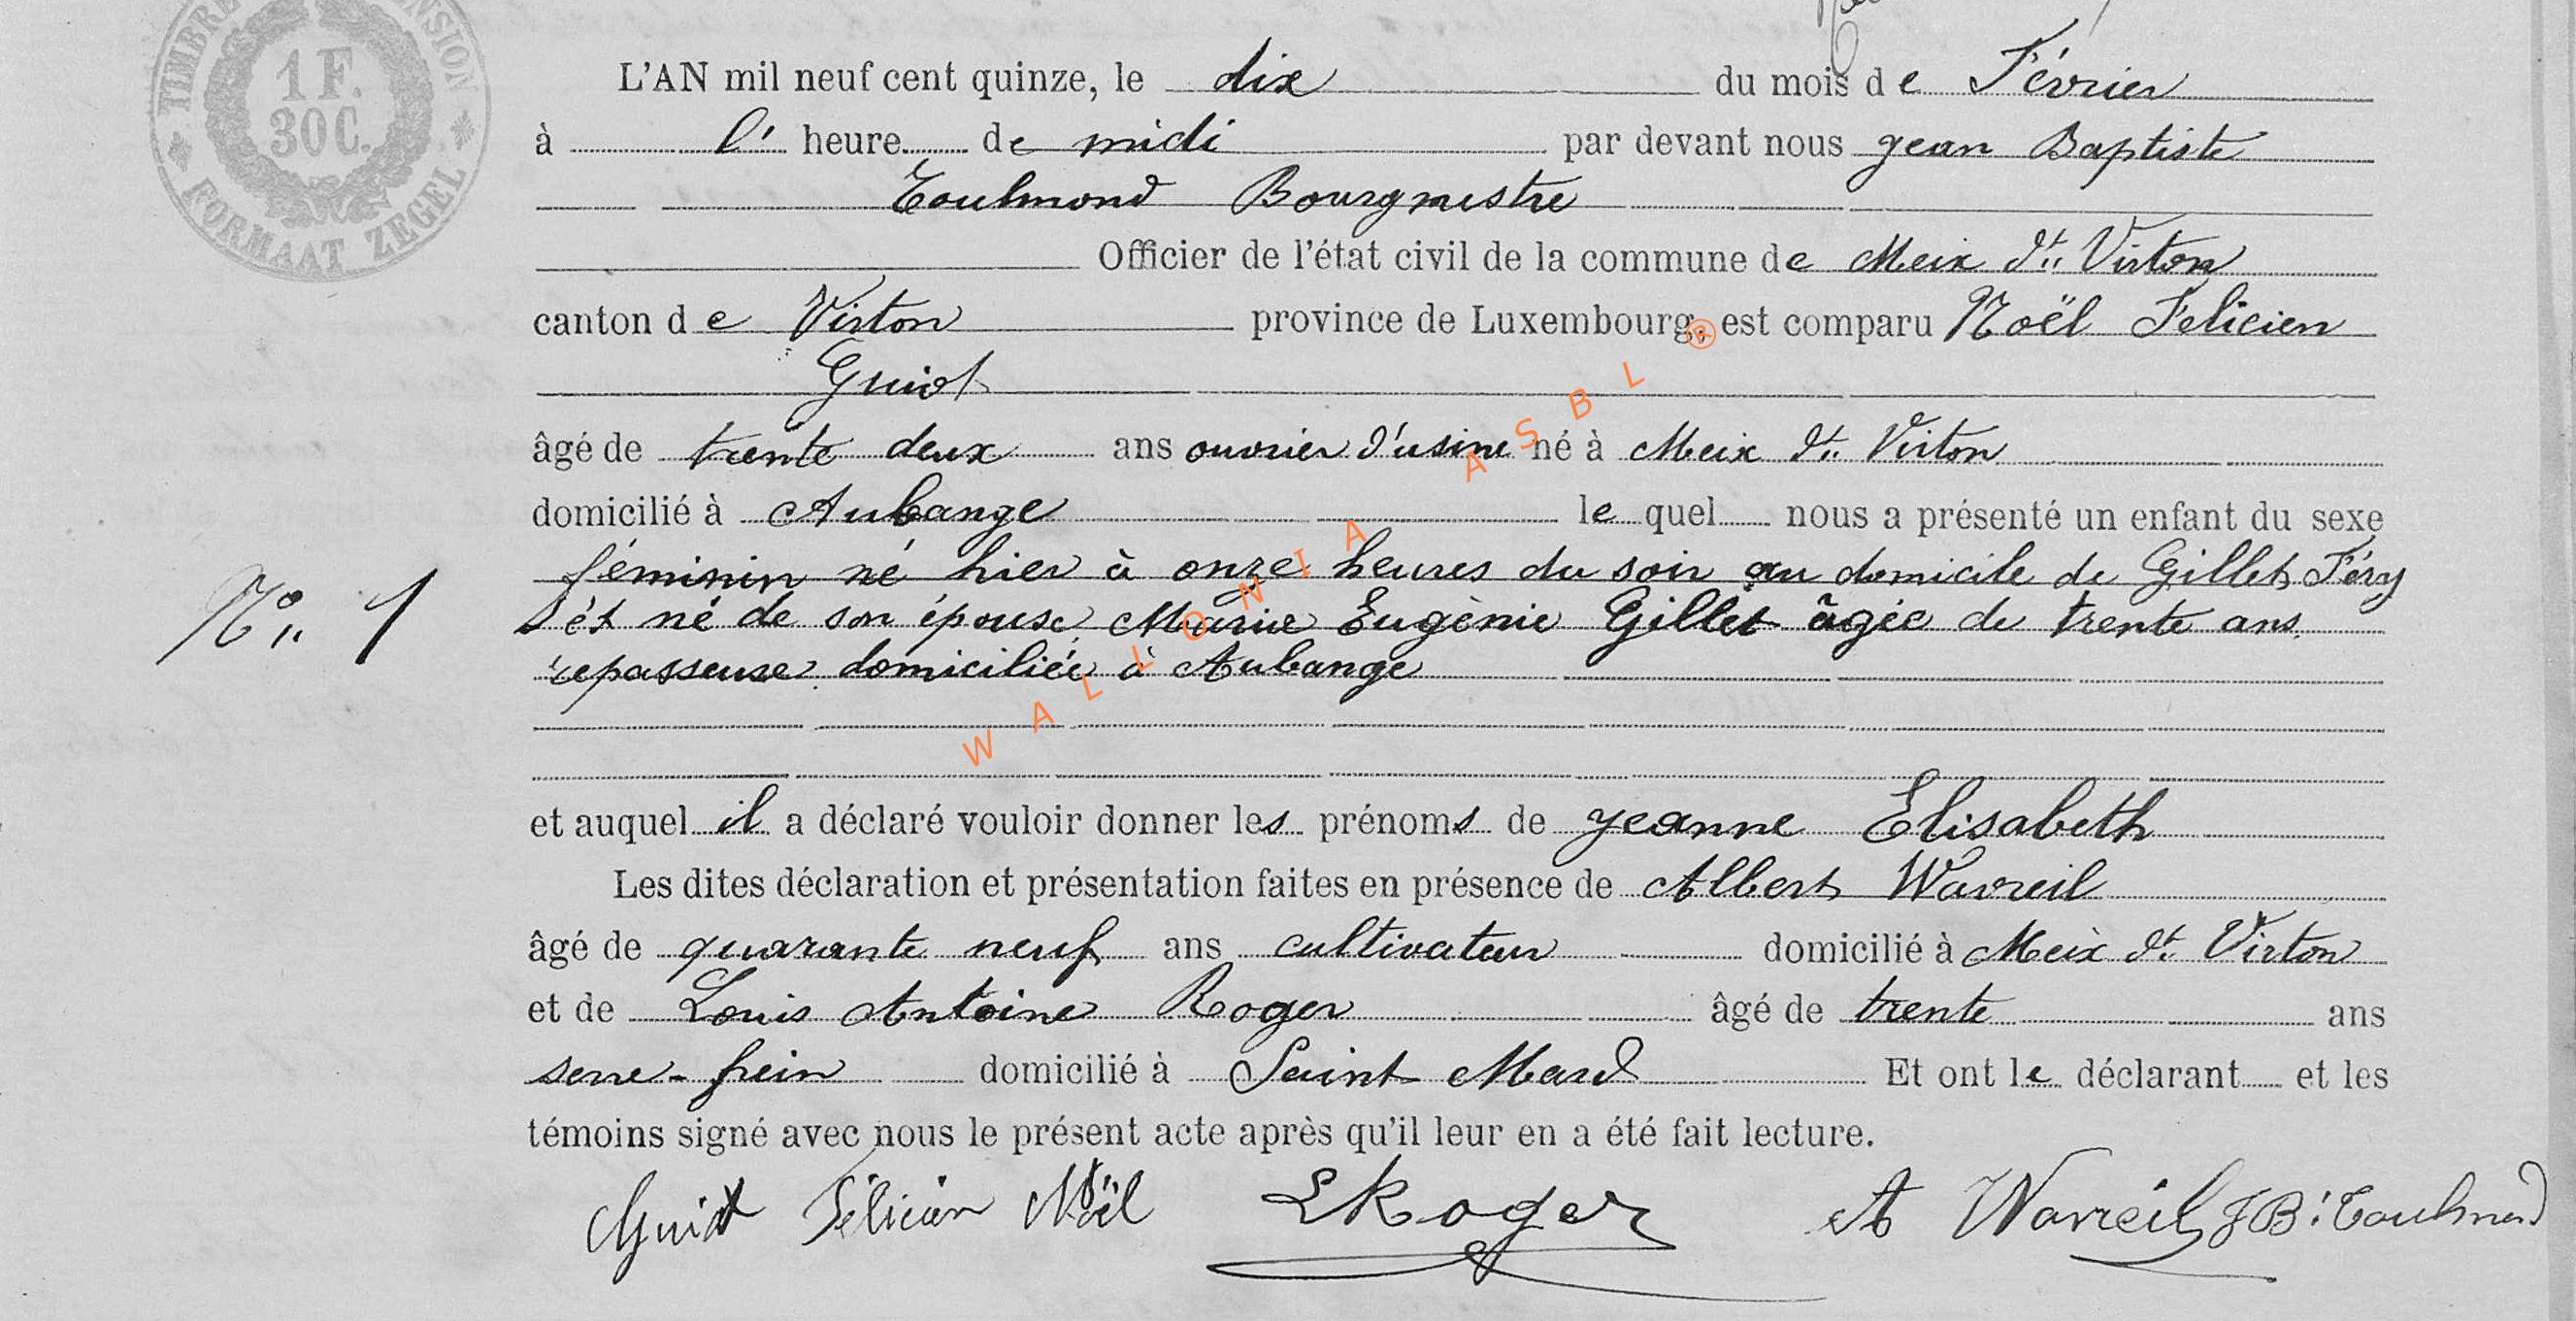 TIMBRE NSION
1 F.
30 C.
FORMAAT ZEGEL
L'AN mil neuf cent quinze, le dix du mois de Février
à l' heure de midi par devant nous Jean Baptiste
Toulmond Bourgmestre
Officier de l'état civil de la commune de Meix dt Virton
canton de Virton province de Luxembourg, est comparu Noël Felicien
Guiot
âgé de trente deux ans ouvrier d'usine né à Meix dt Virton
domicilié à Aubange lequel nous a présenté un enfant du sexe
féminin né hier à onze heures du soir au domicile de Gillet Féry
et né de son épouse Marie Eugènie Gillet âgée de trente ans
repasseuse domiciliée à Aubange
No 1
et auquel il a déclaré vouloir donner les prénoms de Jeanne Elisabeth
Les dites déclaration et présentation faites en présence de Albert Wavreil
âgé de quarante neuf ans cultivateur domicilié à Meix dt Virton
et de Louis Antoine Roger âgé de trente ans
serre-frein domicilié à Saint Mard Et ont le déclarant et les
témoins signé avec nous le présent acte après qu'il leur en a été fait lecture.
Guiot Félicien Noël L Roger A Wavreil J B: Toulmond
WALLONIA ASBL ®